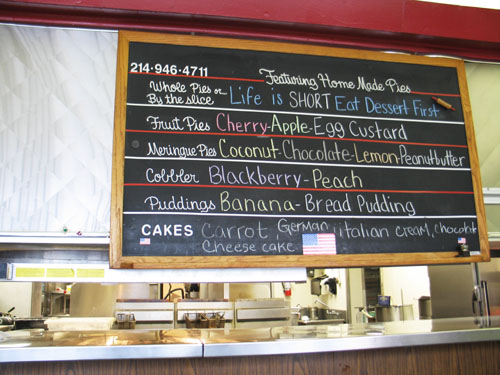 214-946-4711
Featuring Home Made Pies
Whole Pies or
By the slice
Life is SHORT Eat Dessert First
Fruit Pies Cherry-Apple-Egg Custard
Meringue Pies Coconut-Chocolate-Lemon-Peanutbutter
Cobbler Blackberry-Peach
Puddings Banana-Bread Pudding
CAKES Carrot, German, italian cream, chocolate
Cheese cake